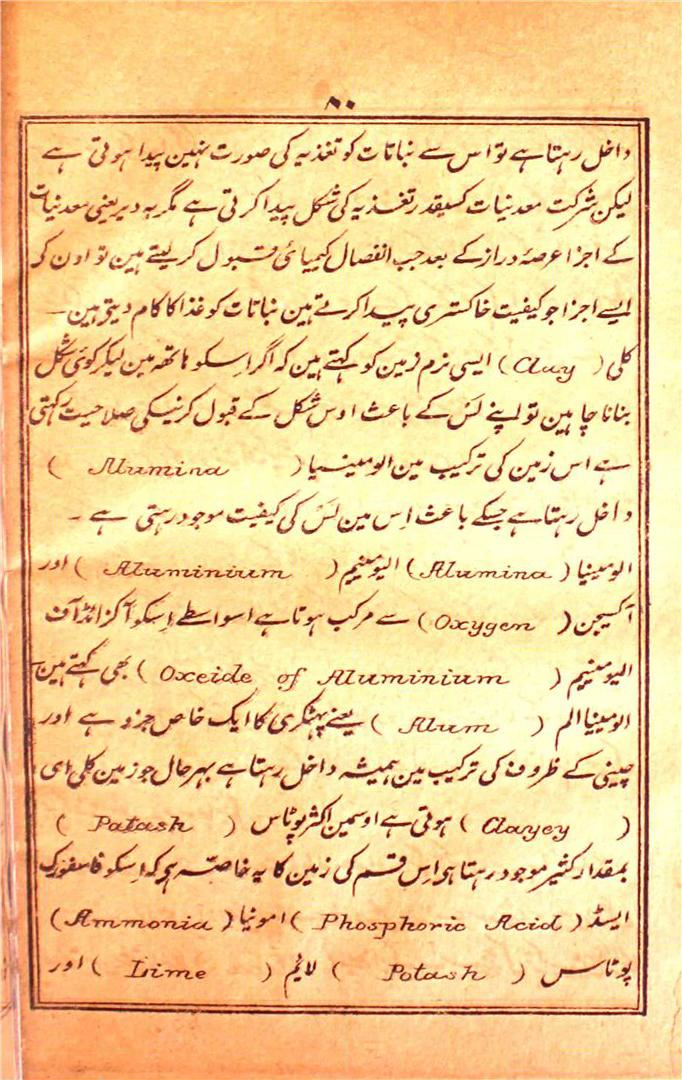 ٨٠
داخل رہتا ہے تو اس سے نباتات کو تغذیہ کی صورت نہین پیدا ہوتی ہے
لیکن شرکت معدنیات کسیقدر تغذیہ کی شکل پیدا کرتی ہے مگر بہ دیر یعنی معدنیات
کے اجزا عرصۂ دراز کے بعد جب انفصال کیمیائی قبول کر لیتے ہین تو اون کے
ایسے اجزا جو کیفیت خاکستری پیدا کرتے ہین نباتات کو غذا کا کام دیتے ہین ــ
کلی (Clay) ایسی نرم زمین کو کہتے ہین کہ اگر اِسکو ہاتھ مین لیکر کوئی شکل
بنانا چاہین تو اپنے لَس کے باعث اوس شکل کے قبول کرنیکی صلاحیت رکہتی
ہے اس زمین کی ترکیب مین الومینیا (Alumina)
داخل رہتا ہے جسکے باعث اِس مین لَس کی کیفیت موجود رہتی ہے ۔
الومینیا (Alumina) الیومنیم (Aluminium) اور
آکسیجن (Oxygen) سے مرکب ہوتا ہے اسواسطے اِسکو آکزائڈ آف
الیومنیم (Oxeide of Aluminium) بھی کہتے ہین
الومینیا الم (Alum) یعنے پھٹکری کا ایک خاص جزو ہے اور
چینی کے ظروف کی ترکیب مین ہمیشہ داخل رہتا ہے بہر حال جو زمین کلی ای
(Clayey) ہوتی ہے اوسمین اکثر پوٹاس (Patash)
بمقدار کثیر موجود رہتا ہی اِس قسم کی زمین کا یہ خاصہ ہی کہ اِسکو فاسفورک
ایسڈ (Phosphoric Acid) امونیا (Ammonia)
پوٹاس (Potash) لائیم (Lime) اور